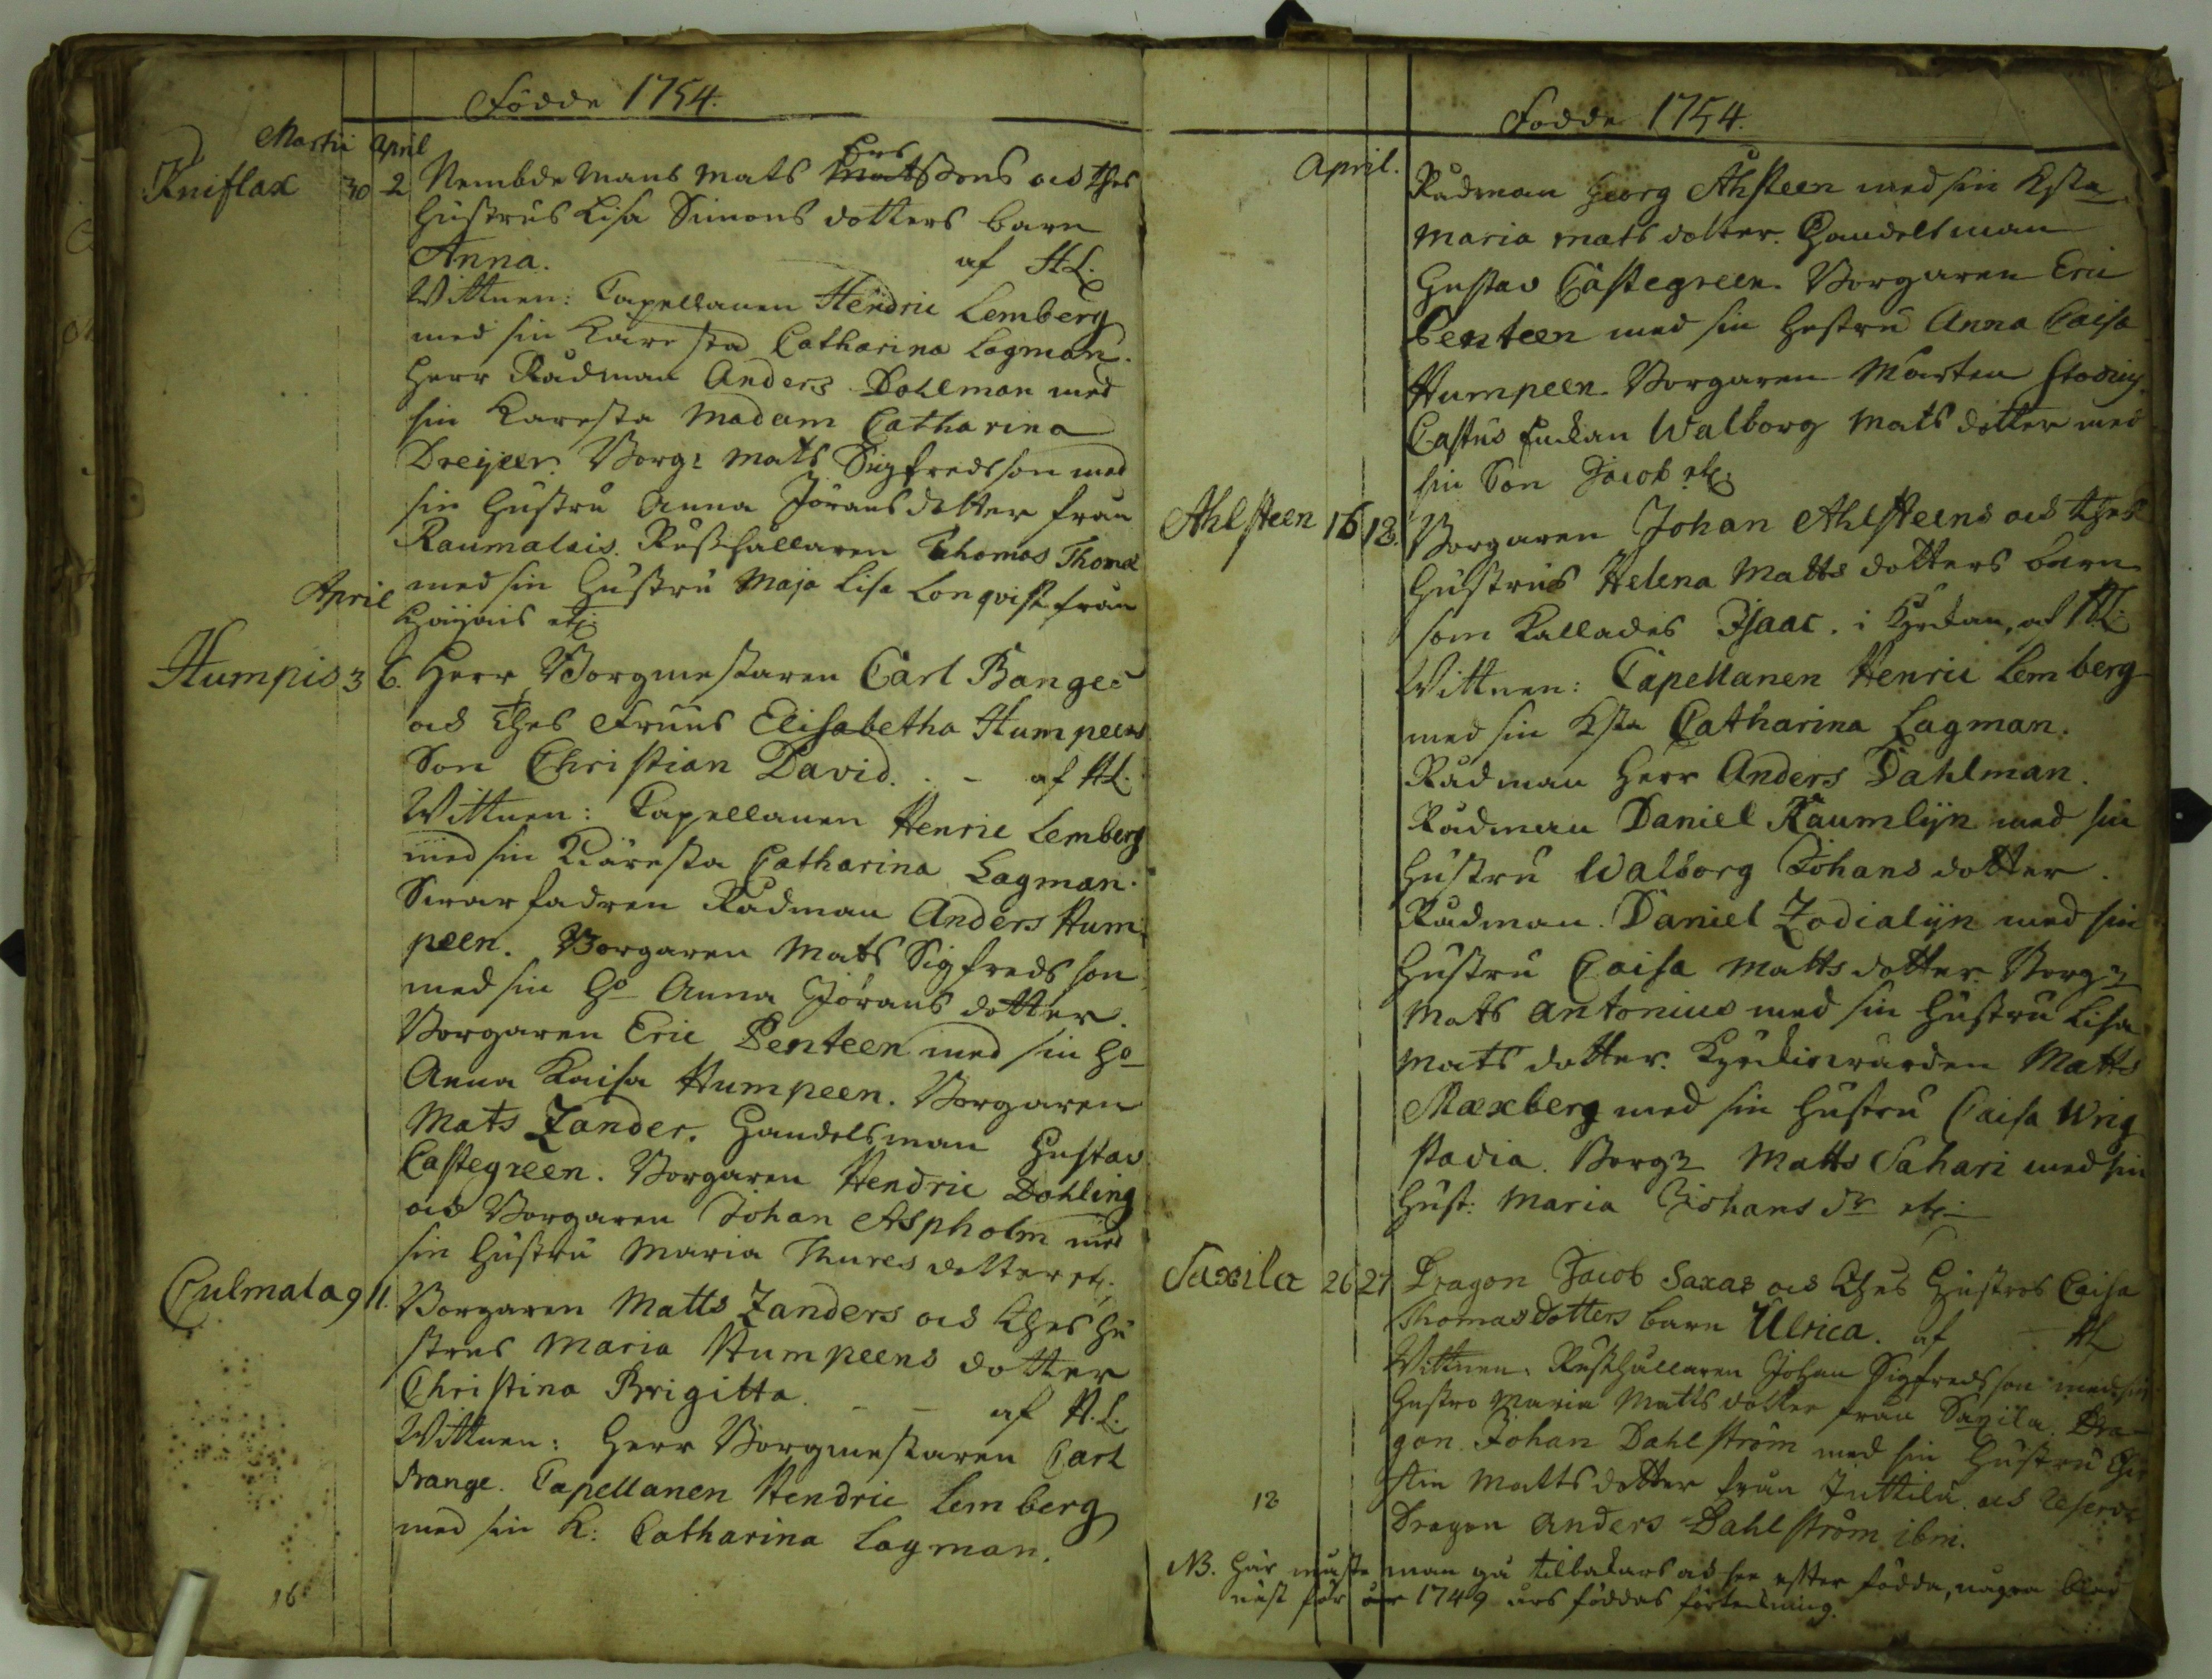 Födde 1754.
Martii April
Kniflax 30 2 Nembdemans Mats Matssons och thes
hustrus Lisa Simons dotters barn
Anna. af HL.
Wittnen: Capellanen Hendric Lemberg
med sin Käresta Catharina Lagman.
Herr Rådman Anders Dohlman med
sin Käresta Madam Catharina
Dreijer. Borg: Mats Sigfredsson med
sin hustru Anna Jörans dotter från
Raumalais. Rusthållaren Thomas Thomæ
med sin hustru Maja Lisa Lonqvist från
April
Humpis 3 6. Herr Borgmestaren Carl Bange
och thes Fruus Elisabetha Humpeens
Son Christian David. - af HL.
Wittnen: Capellanen Henric Lemberg
med sin Käresta Catharina Lagman.
Swärfadren Rådman Anders Hum
peen. Borgaren Mats Sigfredsson
med sin ho Anna Jörans dotter.
Borgaren Eric Penteen med sin ho
Anna Kaisa Humpeen. Borgaren
Mats Zander. Handelsman Gustav
Castegreen. Borgaren Hendric Dohling
och Borgaren Johan Aspholm med
sin hustru Maria Thures dotter etc.
Culmala 9 11. Borgaren Matts Zanders och thes hu
strus Maria Humpeens dotter
Christina Brigitta. - - af H.L.
Wittnen: Herr Borgmestaren Carl
Bange. Capellanen Hendric Lemberg
med sin K: Catharina Lagman.
16
Födde 1754.
April.
Rådman Georg Ahlsteen med sin Ksta
Maria Mats dotter. Handelsman
Gustav Castegreen. Borgaren Eric
Penteen med sin hustru Anna Caisa
Humpeen. Borgaren Mårten
Castus Enckan Walborg Mats dotter med
sin Son Jacob etc.
Ahlsteen 16 18. Borgaren Johan Ahlsteens och thes
hustrus Helena Matts dotters barn
som kallades Isaac. i Kyrckan, af HL.
Wittnen: Capellanen Henric Lemberg
med sin Ksta Catharina Lagman.
Rådman Herr Anders Dahlman.
Rådman Daniel Raumlijn med sin
hustru Walborg Johans dotter.
Rådman. Daniel Zodialijn med sin
hustru Caisa Matts dotter. Borg:
Mats Antonius med sin hustru Lisa
Mats dotter. Kyrckiowärden Matts
Maxberg med sin hustru Caisa Wrig
stadia. Borg: Matts Sahari med sin
hust: Maria Johans dr etc.
Saxila 26 27 Dragon Jacob Saxas och thes hustros Caisa
Thomasdotters barn Ulrica. af - HL
Wittnen. Rusthållaren Johan Sigfredsson med sin
hustro Maria Matts dotter från Saxila. Dra-
gon. Johan Dahlström med sin hustru Chir
stin Matts dotter från Juttila. och
Dragon Anders Dahlström ibm.
18
NB. här måste man gå tilbakars och see efter födda, några blad
näst för år 1749 års föddas förteckning.